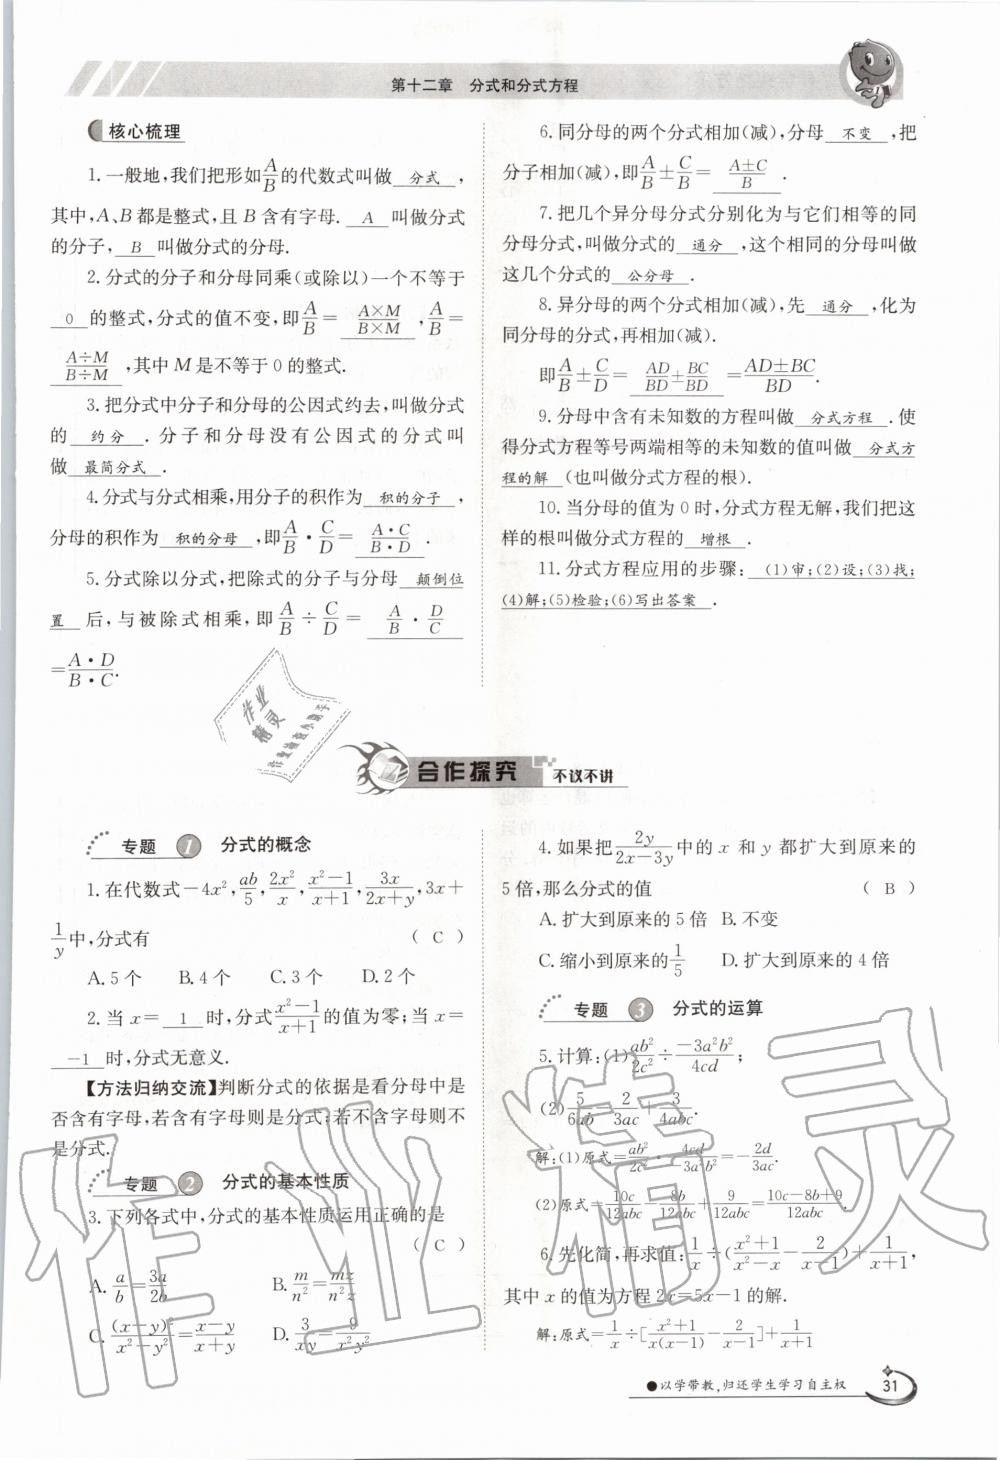 第十二章 分式和分式方程
核心梳理
1. 一般地,我们把形如A/B的代数式叫做 分式 ,
其中,A、B都是整式,且B含有字母. A 叫做分式
的分子, B 叫做分式的分母.
2. 分式的分子和分母同乘(或除以)一个不等于
0 的整式,分式的值不变,即A/B= A×M/B×M ,A/B=
A÷M/B÷M ,其中M是不等于0的整式.
3. 把分式中分子和分母的公因式约去,叫做分式
的 约分 . 分子和分母没有公因式的分式叫
做 最简分式 .
4. 分式与分式相乘,用分子的积作为 积的分子 ,
分母的积作为 积的分母 ,即A/B·C/D= A·C/B·D .
5. 分式除以分式,把除式的分子与分母 颠倒位
置 后,与被除式相乘,即A/B÷C/D= A/B·D/C
=A·D/B·C.
6. 同分母的两个分式相加(减),分母 不变 ,把
分子相加(减),即A/B±C/B= A±C/B .
7. 把几个异分母分式分别化为与它们相等的同
分母分式,叫做分式的 通分 ,这个相同的分母叫做
这几个分式的 公分母 .
8. 异分母的两个分式相加(减),先 通分 ,化为
同分母的分式,再相加(减).
即A/B±C/D= AD/BD±BC/BD =AD±BC/BD.
9. 分母中含有未知数的方程叫做 分式方程 . 使
得分式方程等号两端相等的未知数的值叫做 分式方
程的解 (也叫做分式方程的根).
10. 当分母的值为0时,分式方程无解,我们把这
样的根叫做分式方程的 增根 .
11. 分式方程应用的步骤: (1)审;(2)设;(3)找;
(4)解;(5)检验;(6)写出答案 .
作业
精灵
合作探究 不议不讲
专题 1 分式的概念
1. 在代数式-4x²,ab/5,2x²/x,x²-1/x+1,3x/2x+y,3x+
1/y中,分式有 ( C )
A. 5个 B. 4个 C. 3个 D. 2个
2. 当x= 1 时,分式x²-1/x+1的值为零;当x=
-1 时,分式无意义.
【方法归纳交流】判断分式的依据是看分母中是
否含有字母,若含有字母则是分式;若不含字母则不
是分式.
专题 2 分式的基本性质
3. 下列各式中,分式的基本性质运用正确的是
( C )
A. a/b=3a/2b B. m/n²=mz/n²z
C. (x-y)²/x²-y²=x-y/x+y D. 3/xy=9/x²y²
4. 如果把2y/2x-3y中的x和y都扩大到原来的
5倍,那么分式的值 ( B )
A. 扩大到原来的5倍 B. 不变
C. 缩小到原来的1/5 D. 扩大到原来的4倍
专题 3 分式的运算
5. 计算:(1)ab²/2c²÷-3a²b²/4cd;
(2)5/6ab-2/3ac+3/4abc.
解:(1)原式=ab²/2c²·4cd/-3a²b²=-2d/3ac.
(2)原式=10c/12abc-8b/12abc+9/12abc=10c-8b+9/12abc.
6. 先化简,再求值:1/x÷(x²+1/x²-x-2/x-1)+1/x+1,
其中x的值为方程2x=5x-1的解.
解:原式=1/x÷[x²+1/x(x-1)-2/x-1]+1/x+1
●以学带教,归还学生学习自主权 31
作业精灵